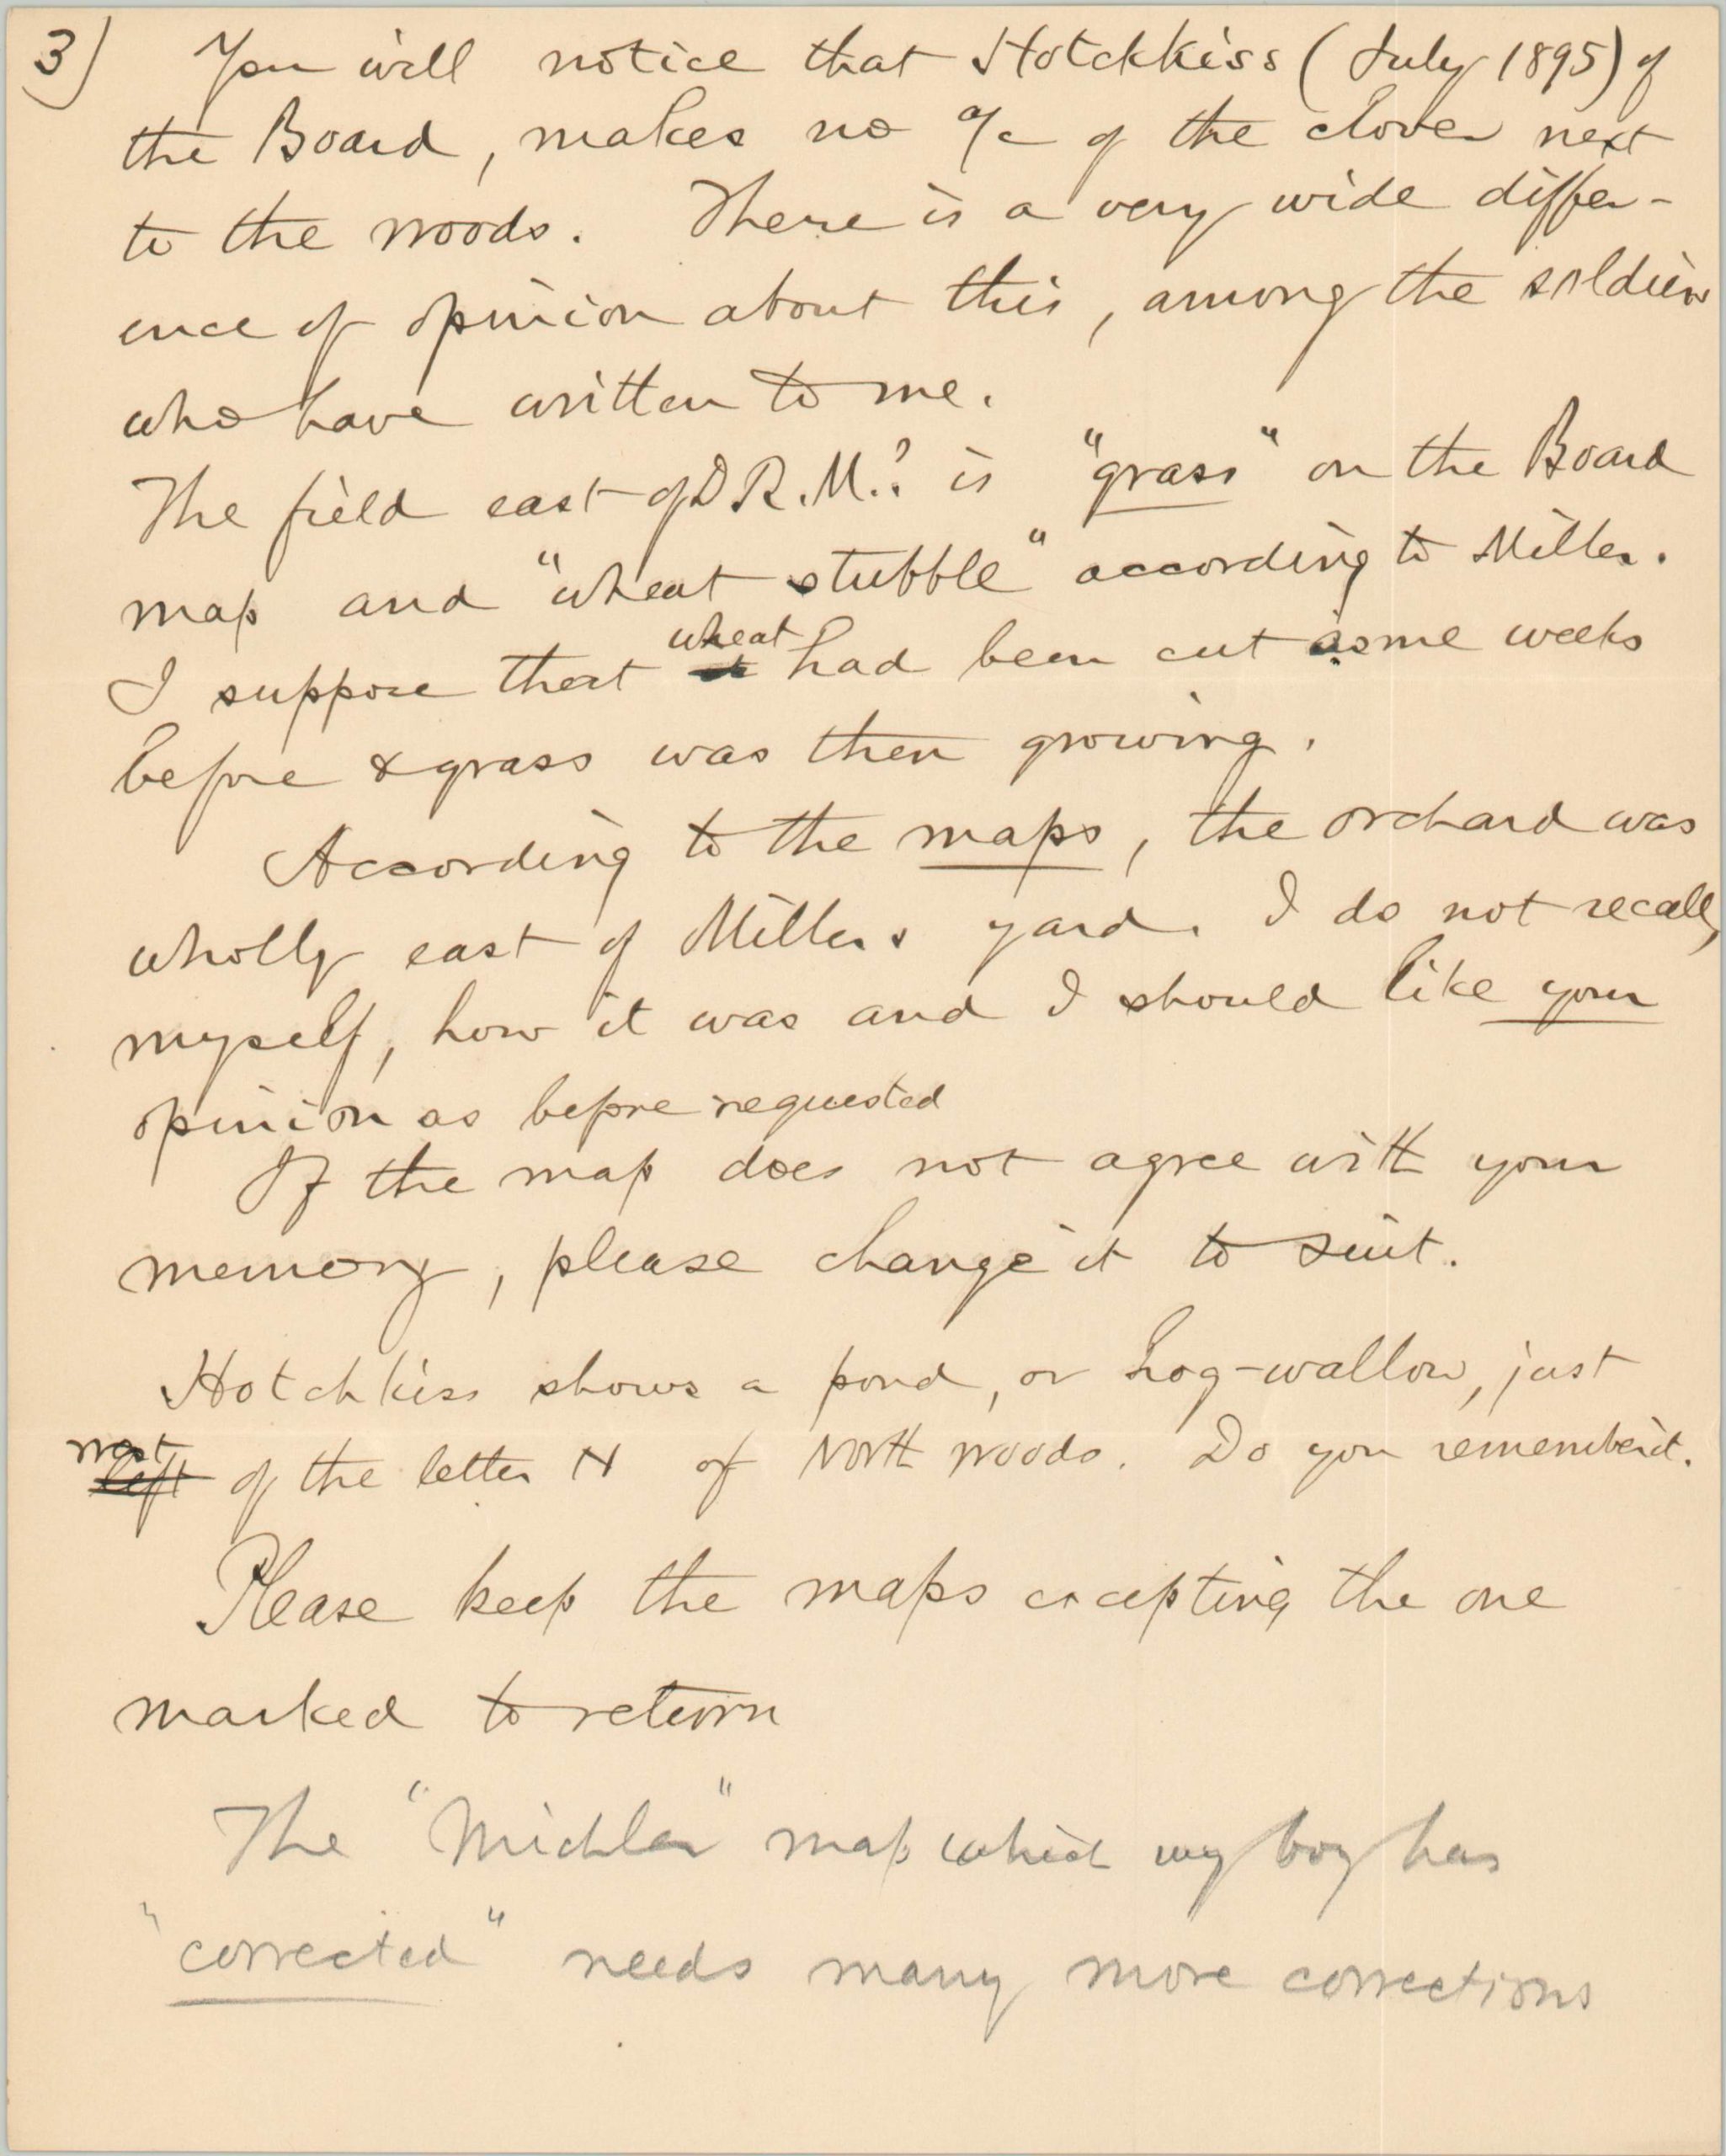 3) You will notice that Hotchkiss (July 1895) of
the Board, makes no a/c of the clover next
to the woods. There is a very wide differ-
ence of opinion about this, among the soldiers
who have written to me.
The field east of D R. M.? is "grass" on the Board
map and "wheat stubble" according to Miller.
I suppose that wheat had been cut some weeks
before & grass was then growing.
According to the maps, the orchard was
wholly east of Millers yard. I do not recall,
myself, how it was and I should like your
opinion as before requested
If the map does not agree with your
memory, please change it to suit.
Hotchkiss shows a pond, or hog-wallow, just
west left of the letter N of North Woods. Do you remember it.
Please keep the maps excepting the one
marked to return
The "Michler" map which my boy has
"corrected" needs many more corrections